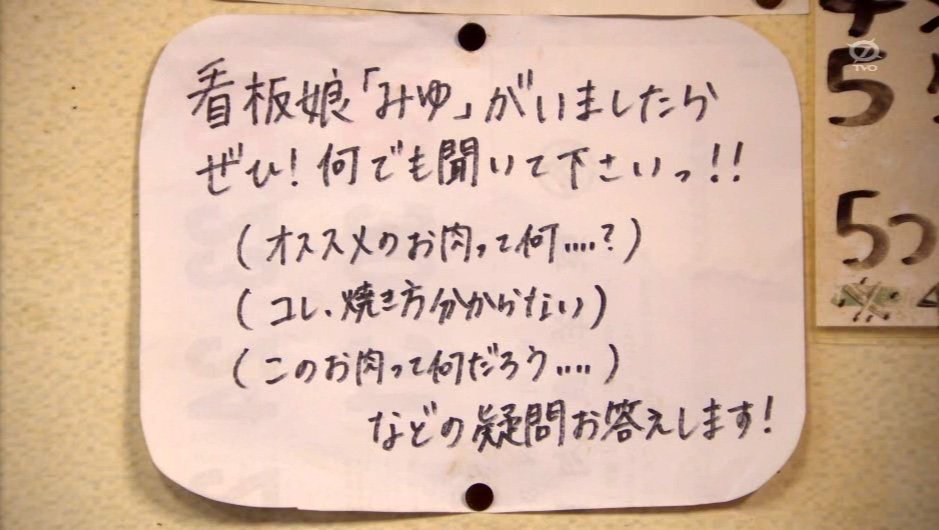 看板娘「みゆ」がいましたら
ぜひ!何でも聞いて下さいっ!!
(オススメのお肉って何....?)
(コレ、焼き方分からない)
(このお肉って何だろう....)
などの疑問お答えします!
TVO
5
5つ